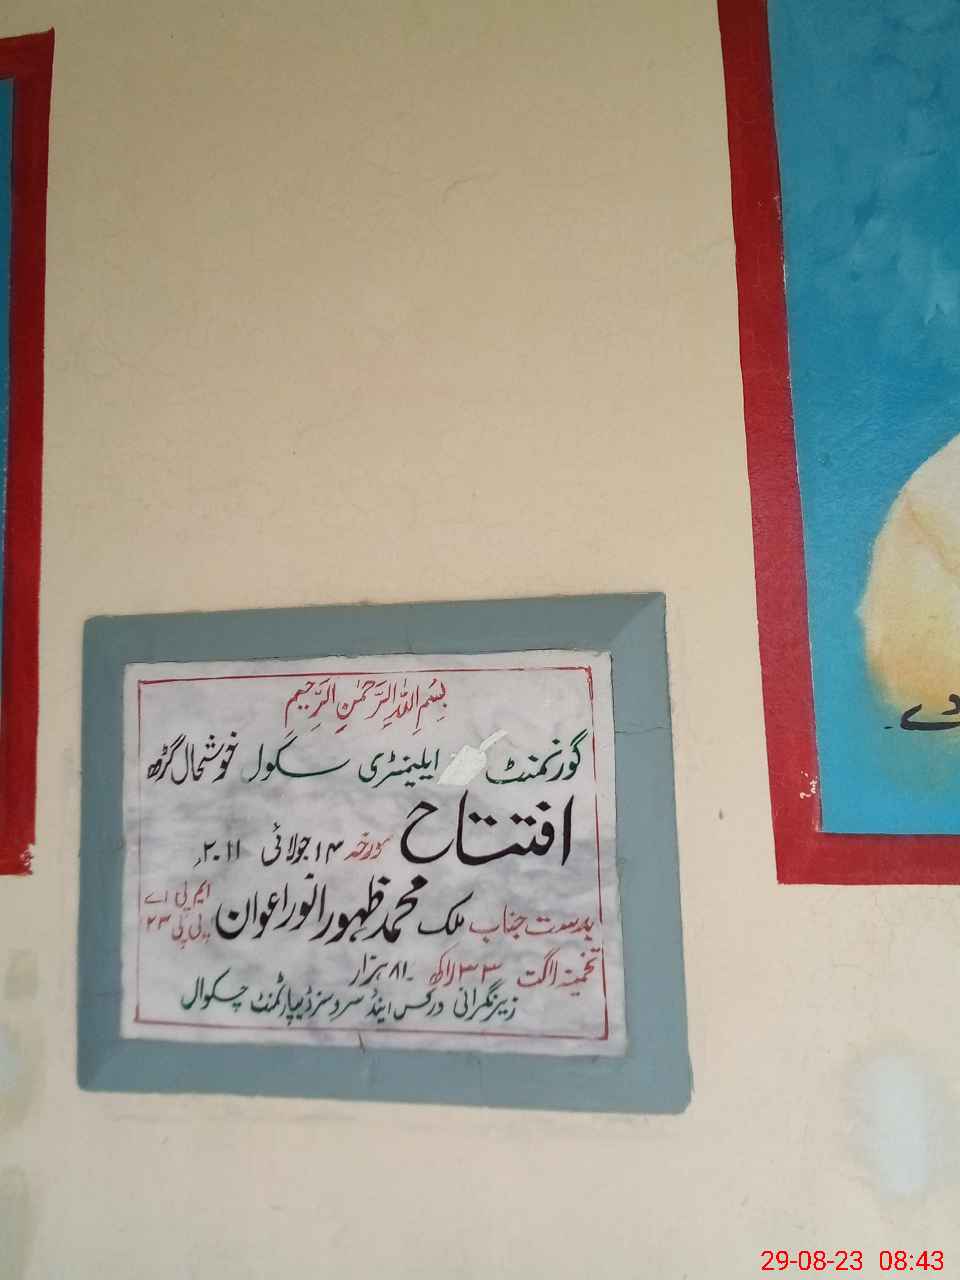 بِسْمِ اللهِ الرَّحْمٰنِ الرَّحِيْمِ
گورنمنٹ ایلیمنٹری سکول خوشحال گڑھ
افتتاح مورخہ ۱۴ جولائی ۲۰۱۱ء
بدست جناب ملک محمد ظہور انور اعوان ایم پی اے پی پی ۲۳
تخمینہ لاگت ۳۳ لاکھ ۸۱ ہزار
زیر نگرانی ورکس اینڈ سروسز ڈیپارٹمنٹ چکوال
دے
29-08-23 08:43